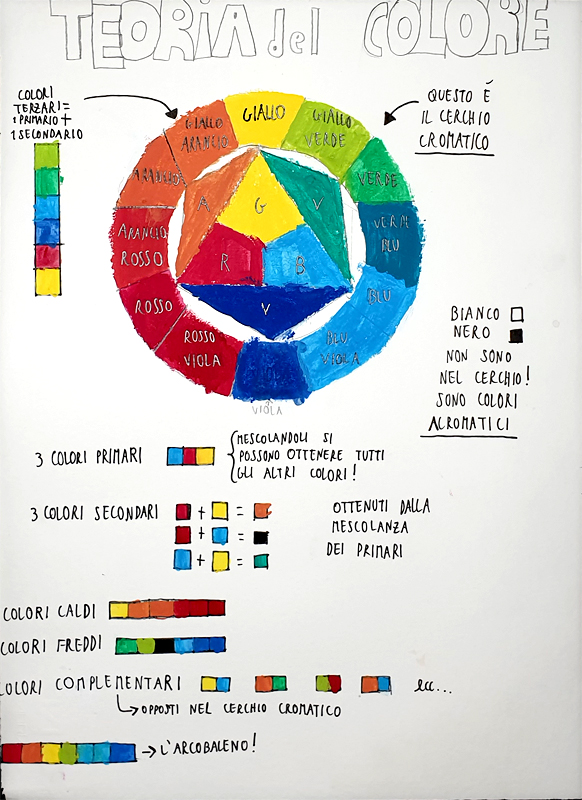 TEORIA del COLORE
COLORI
TERZARI =
1 PRIMARIO +
1 SECONDARIO
QUESTO É
IL CERCHIO
CROMATICO
GIALLO
GIALLO
VERDE
VERDE
VERDE
BLU
BLU
BLU
VIOLA
VIOLA
ROSSO
VIOLA
ROSSO
ARANCIO
ROSSO
ARANCIO
GIALLO
ARANCIO
A G V
R B
V
BIANCO
NERO
NON SONO
NEL CERCHIO!
SONO COLORI
ACROMATICI
3 COLORI PRIMARI
MESCOLANDOLI SI
POSSONO OTTENERE TUTTI
GLI ALTRI COLORI!
3 COLORI SECONDARI
+ =
+ =
+ =
OTTENUTI DALLA
MESCOLANZA
DEI PRIMARI
COLORI CALDI
COLORI FREDDI
COLORI COMPLEMENTARI ecc...
OPPOSTI NEL CERCHIO CROMATICO
L'ARCOBALENO!